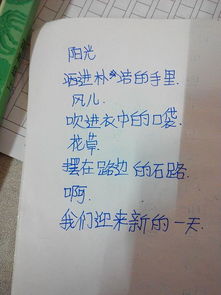 阳光
洒进朴实的手里.
风儿.
吹进衣中的口袋.
花草.
摆在路边的石路.
啊.
我们迎来新的一天.